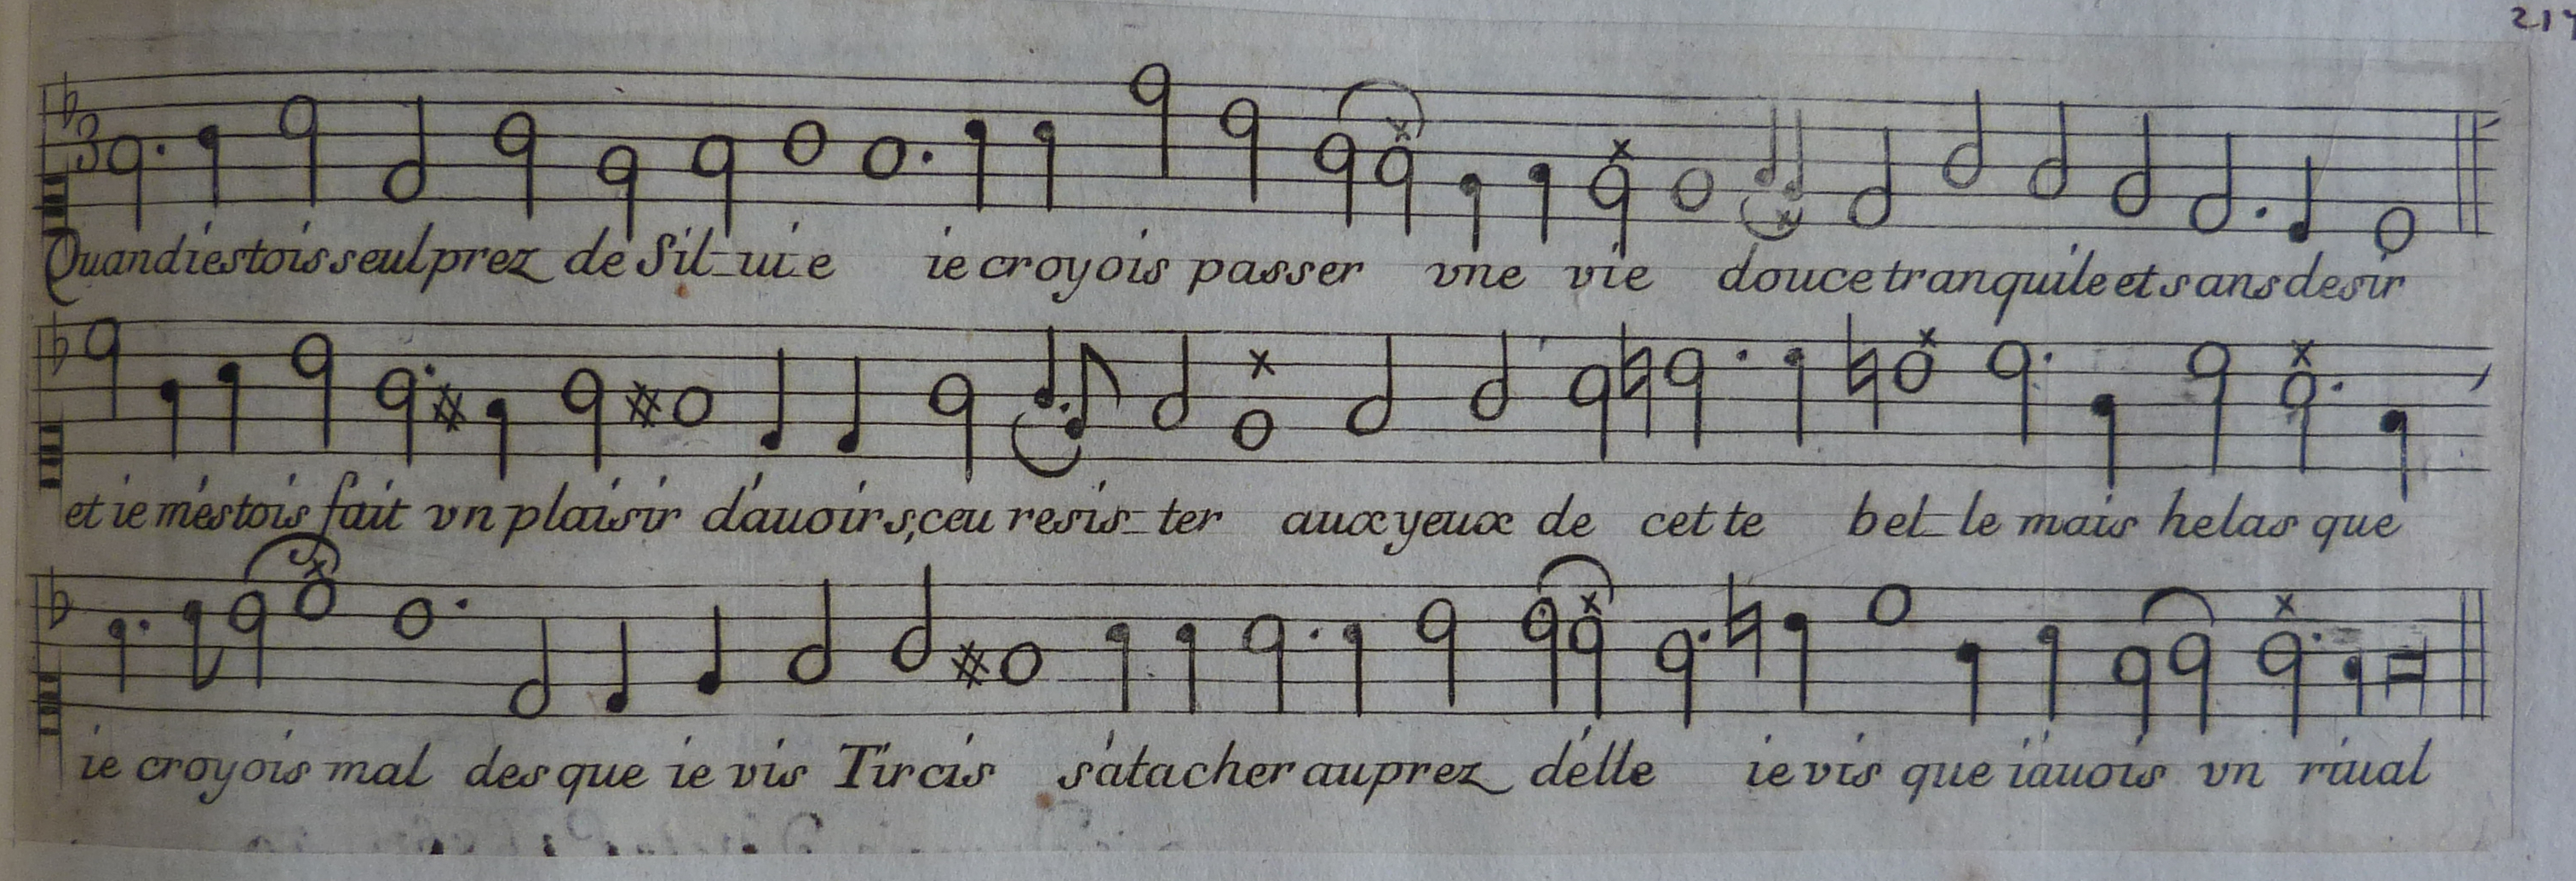 217
3
Quand iestois seul prez de Sil-uie ie croyois passer vne vie douce tranquile et sans desir
et ie m'estois fait vn plaisir d'auoir sceu resis-ter aux yeux de cette bel-le mais helas que
ie croyois mal des que ie vis Tircis s'atacher auprez d'elle ie vis que i'auois vn riual